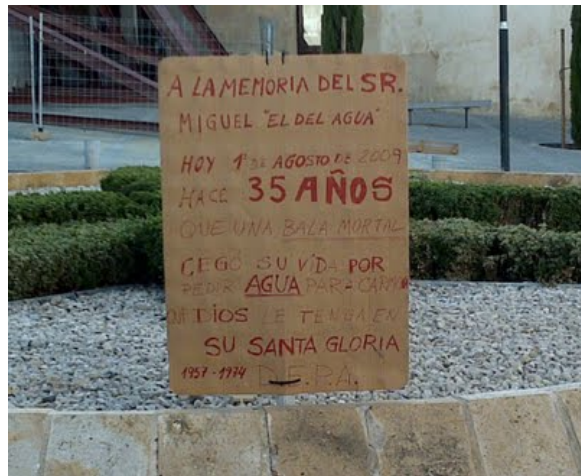 A LA MEMORIA DEL SR.
MIGUEL "EL DEL AGUA"
HOY 1º DE AGOSTO DE 2009
HACE 35 AÑOS
QUE UNA BALA MORTAL
CEGÓ SU VIDA POR
PEDIR AGUA PARA CARMONA
DIOS LE TENGA EN
SU SANTA GLORIA
1957-1974 D.E.P.A.